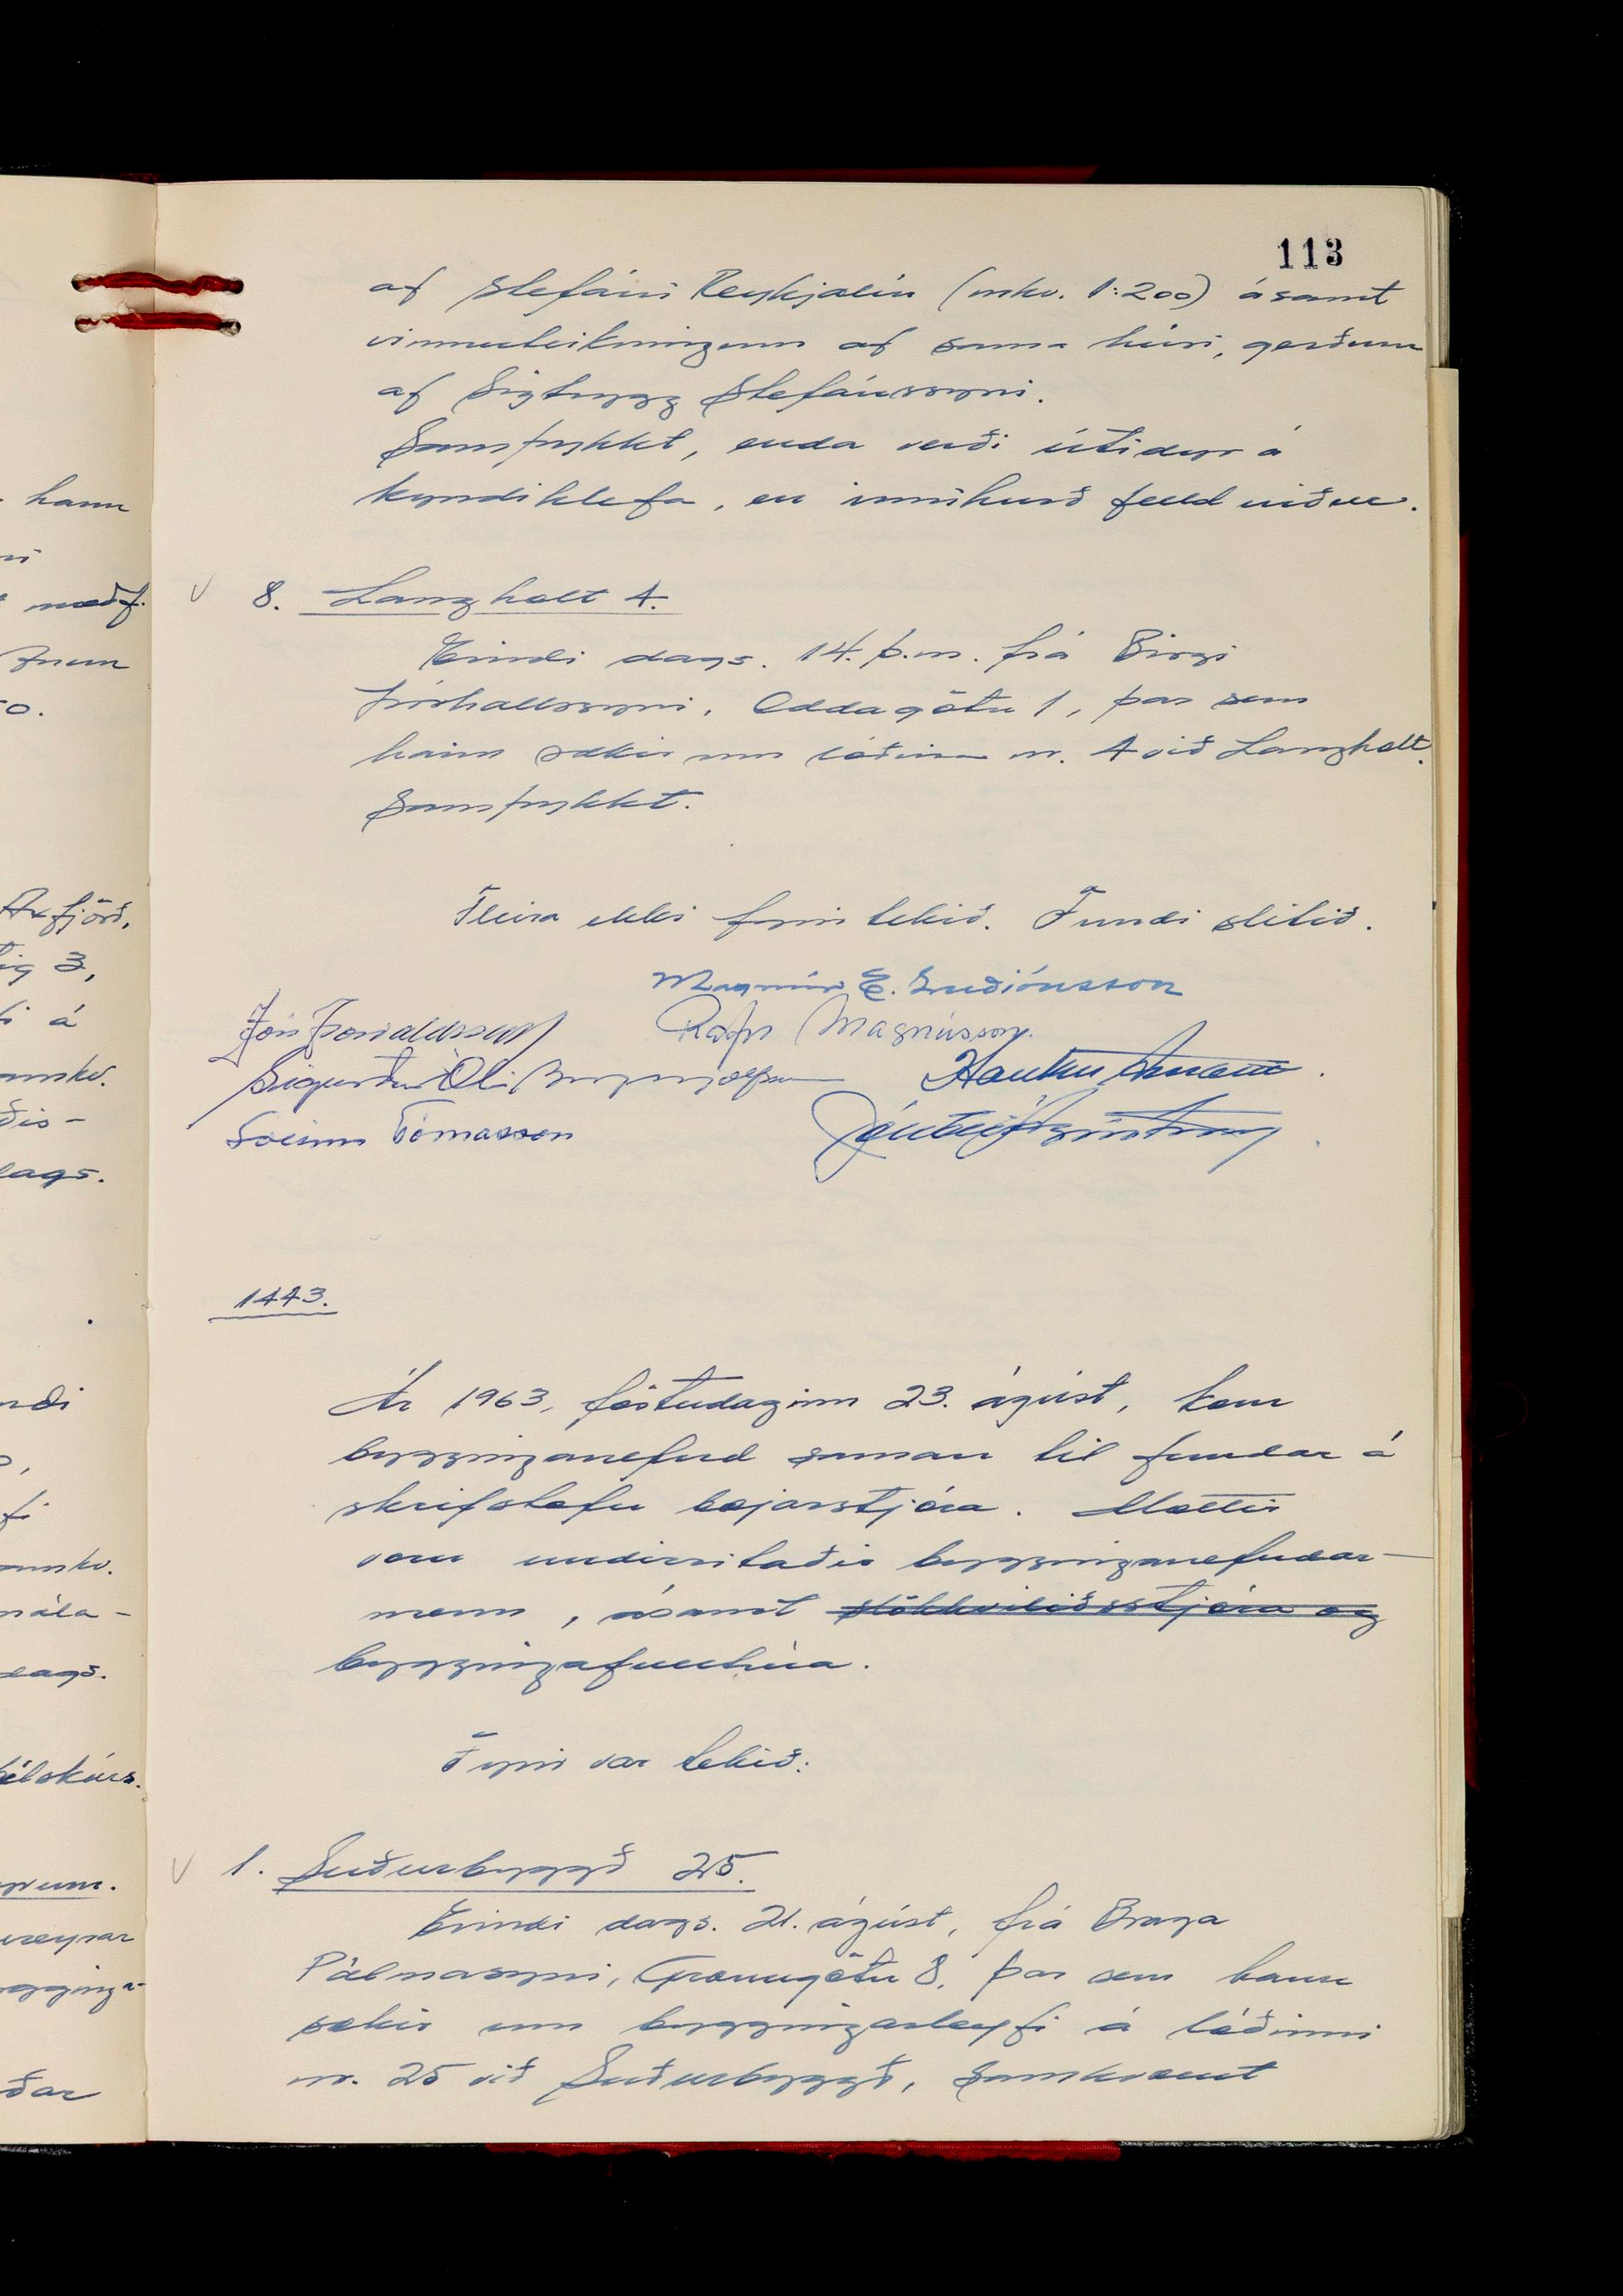 113
af Stefáni Reykjalín (mkv. 1:200) ásamt
vinnuteikningum af sama húsi, gerðum
af Sigtrygg Stefánssyni.
Samþykkt, enda verði útidyr á
kyndiklefa, en innihurð felld niður.
8. Langholt 4.
Erindi dags. 14. þ.m. frá Birgi
Þórhallssyni, Oddagötu 1, þar sem
hann sækir um lóðina nr. 4 við Langholt.
Samþykkt.
Fleira ekki fyrir tekið. Fundi slitið.
Magnús E. Guðjónsson
Jón Þorvaldsson Rafn Magnússon.
Sigurður Óli Brynjólfsson Haukur Árnason.
Sveinn Tómasson
1443.
Ár 1963, föstudaginn 23. ágúst, kom
bygginganefnd saman til fundar á
skrifstofu bæjarstjóra. Mættir
voru undirritaðir bygginganefndar-
menn, ásamt slökkviliðsstjóra og
byggingafulltrúa.
Fyrir var tekið:
1. Suðurbyggð 25.
Erindi dags. 21. ágúst, frá Braga
Pálmasyni, Grænugötu 8, þar sem hann
sækir um byggingarleyfi á lóðinni
nr. 25 við Suðurbyggð, samkvæmt